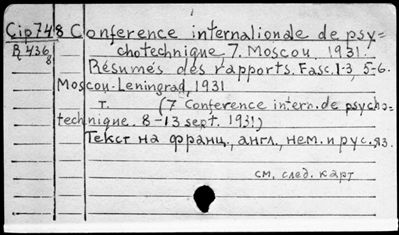 Cip748 Conference internationale de psy=
R 436/8 chotechnique, 7. Moscou, 1931.
Résumés des rapports. Fasc. 1-3, 5-6.
Moscou-Leningrad, 1931
т. (7 Conference intern. de psycho=
technique. 8-13 sept. 1931)
Текст на франц., англ., нем. и рус. яз.
см. след. карт